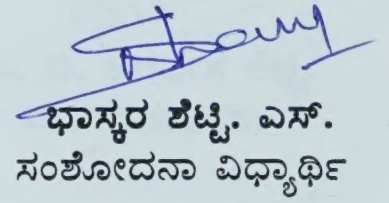 ಭಾಸ್ಕರ ಶೆಟ್ಟಿ. ಎಸ್.
ಸಂಶೋದನಾ ವಿಧ್ಯಾರ್ಥಿ